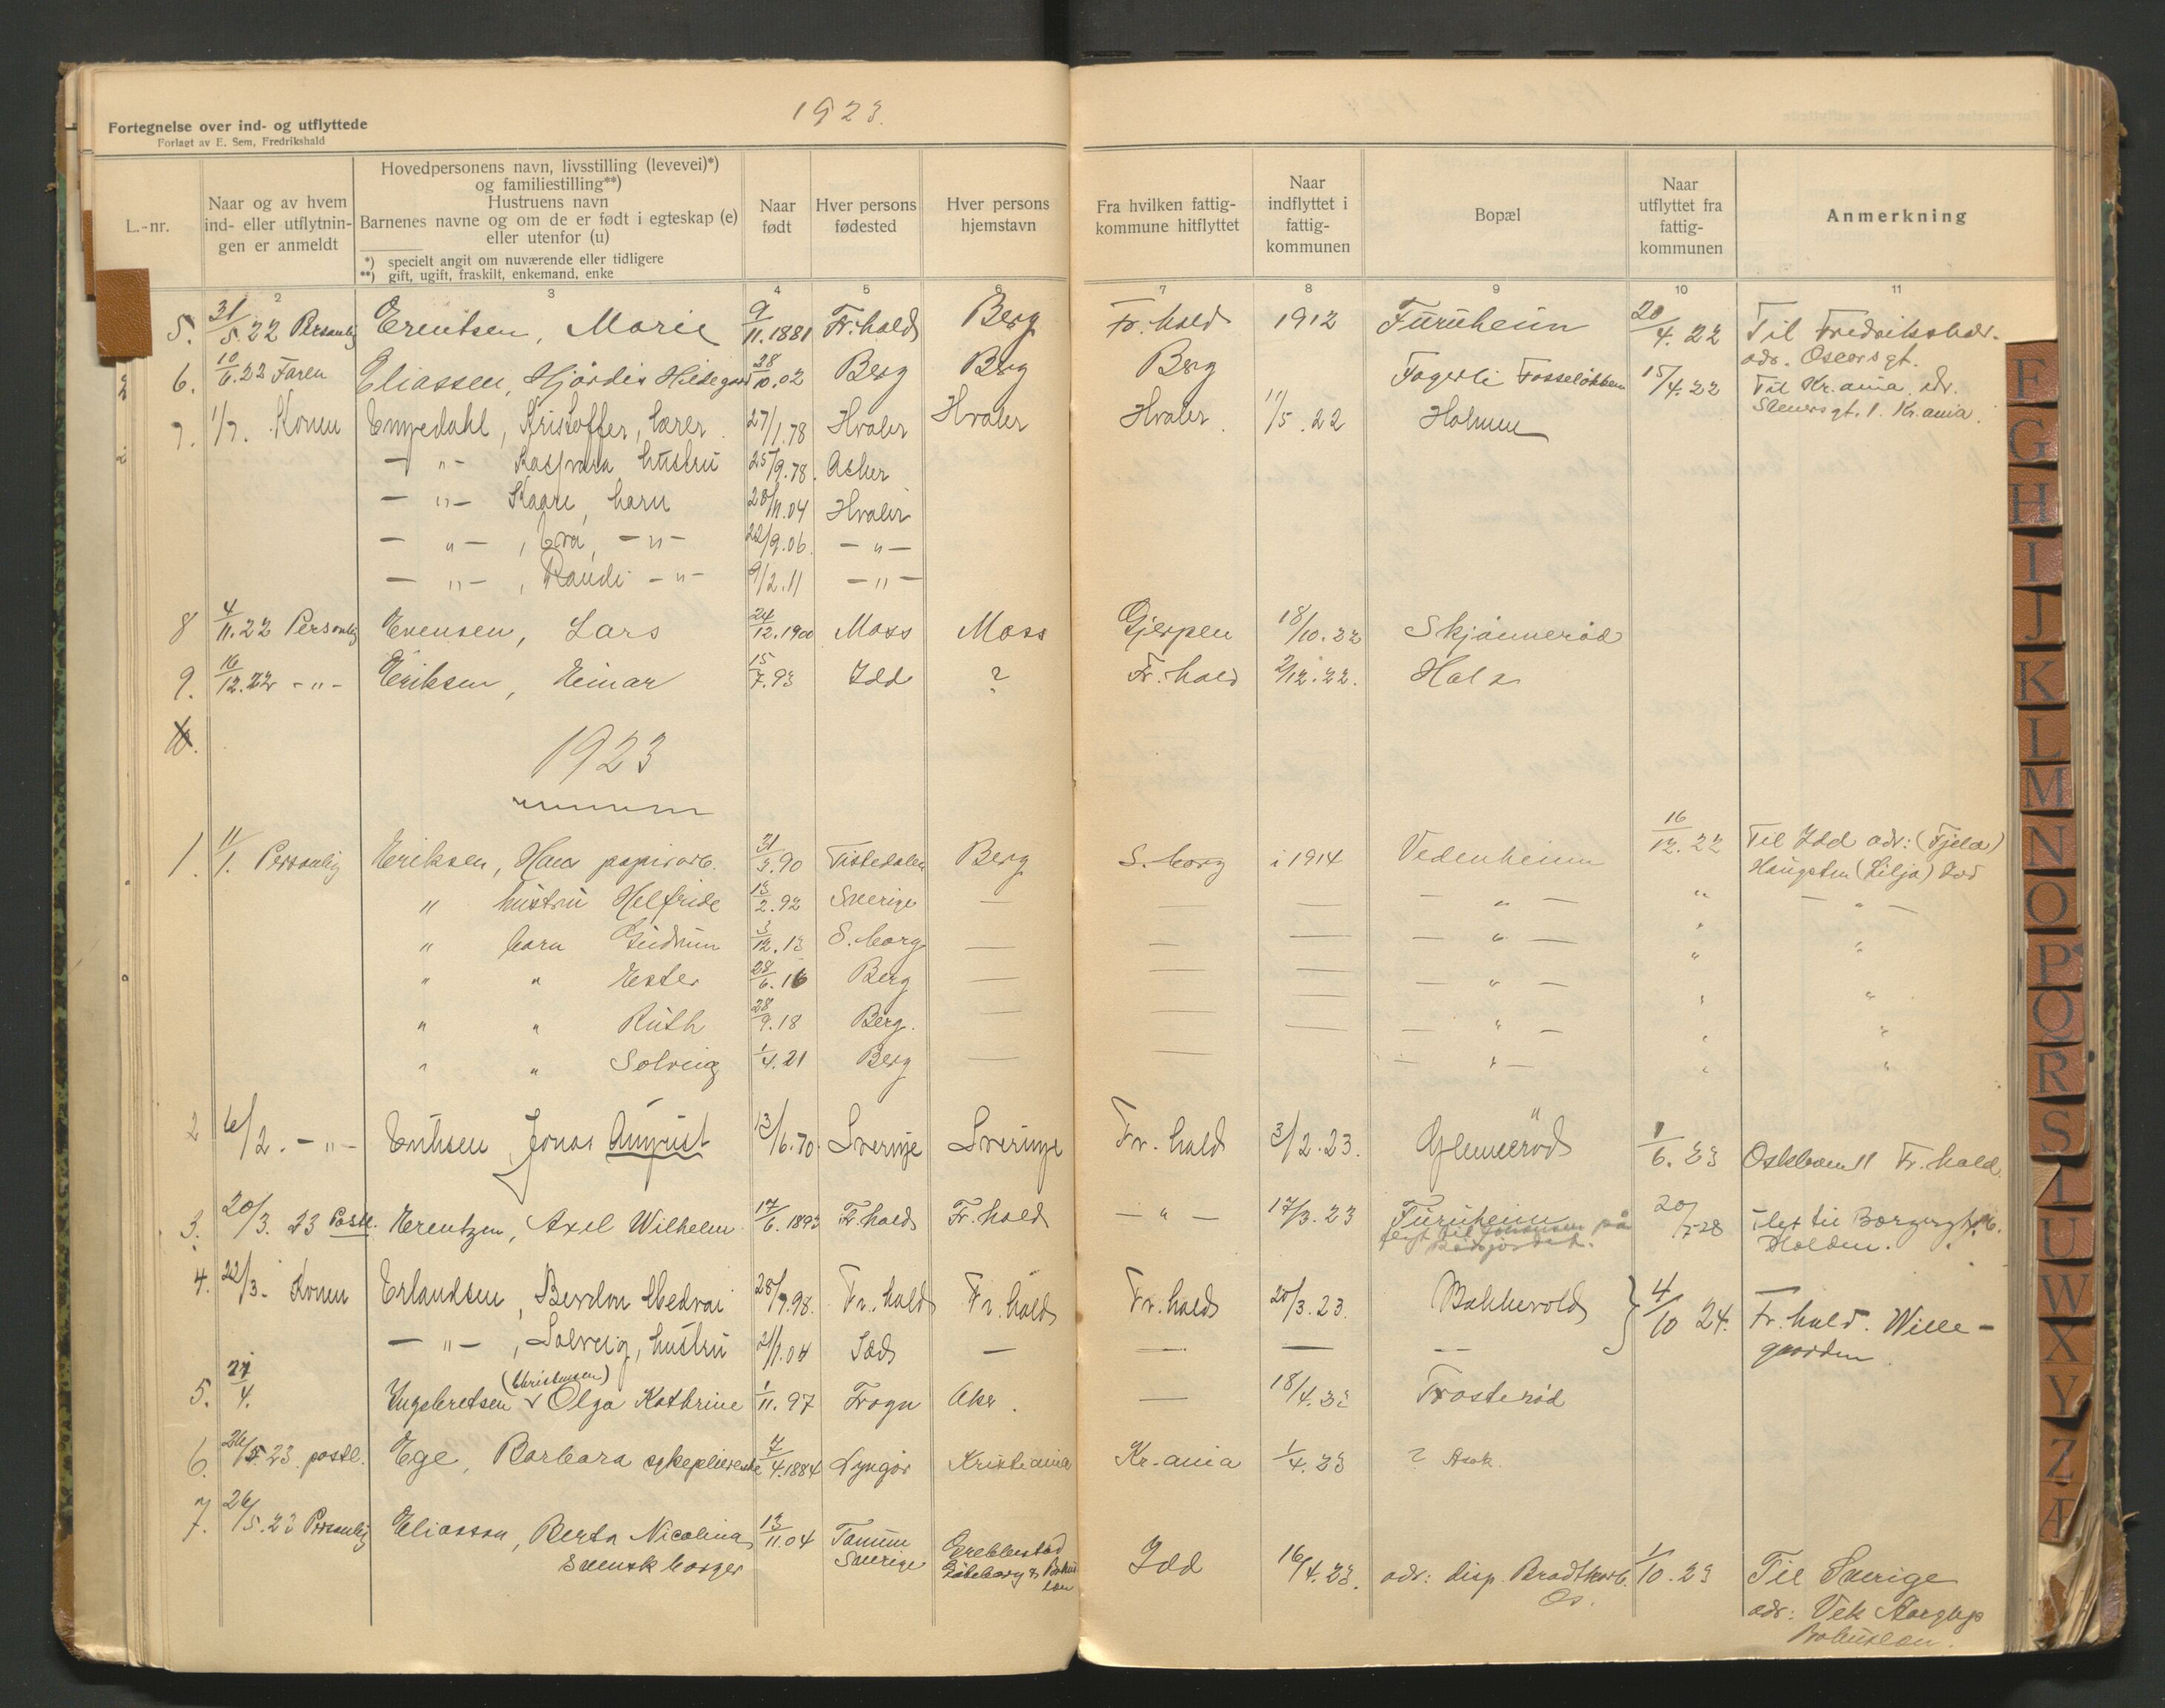 1923.
Fortegnelse over ind- og utflyttede
Forlagt av E. Sem, Fredrikshald
L.-nr.
Naar og av hvem ind- eller utflytnin-gen er anmeldt
Hovedpersonens navn, livsstilling (levevei)*)
og familiestilling**)
Hustruens navn
Barnenes navne og om de er født i egteskap (e)
eller utenfor (u)
*) specielt angit om nuværende eller tidligere
**) gift, ugift, fraskilt, enkemand, enke
Naar født
Hver persons fødested
Hver persons hjemstavn
Fra hvilken fattig-kommune hitflyttet
Naar indflyttet i fattig-kommunen
Bopæl
Naar utflyttet fra fattig-kommunen
Anmerkning
2 3 4 5 6 7 8 9 10 11
5. 31/5.22 Personlig Erentsen, Marie 9/11.1881 Fr.hald Berg Fr.hald 1912 Furuheim 20/4.22 Til Fredrikshald.
adr. Oscarsgt.
6. 10/6.22 Faren Eliassen, Hjördis Hildegard 28/10.02 Berg Berg Berg Fagerli Fosseløkken 15/4.22 Til Kr.ania adr.
Stenersgt. 1. Kr.ania.
7. 1/7. Konen Enngdahl, Kristoffer, lærer 27/1.78 Hvaler Hvaler Hvaler. 11/5.22 Holmen
— " — hustru 25/9.78. Asker
— " — Kaare, barn 28/11.04 Hvaler
— " —, Eva, — " — 22/9.06. — " —
— " —, Randi — " — 9/2.11 — " —
8 4/11.22 Personlig Evensen, Lars 24/12.1900 Moss Moss Gjerpen 18/10.22 Skjønnerød
9. 16/12.22 — " — Eriksen, Einar 15/7.93 Idd ? Fr.hald 2/12.22. Hola
10.
1923
1. 11/1. Personlig Eriksen, Hans papirarb. 31/3.90 Tistedalen Berg S.borg i 1914 Vedenheim 16/12.22 Til Idd adr: (Fjeld)
Haugsten (Lilja) Idd
" hustru Helfride 13/2.92 Sverige — — — — " — " — " —
" barn Gudrun 3/12.13 S.borg — — — — " — " "
" " Ester 28/6.16 Berg — — — — " — " "
" " Ruth 28/9.18 Berg. — — — — " — " "
" " Solveig 1/4.21 Berg — — — " — " "
2 6/2. — " — Eriksen, Jonas August 13/6.70. Sverige Sverige Fr.hald 3/2.23. Glennerød 1/6.23 Fr.hald
3. 20/3.23 Postl. Erentzen, Axel Wilhelm 17/6.1893 Fr.hald Fr.hald — " — 17/3.23 Furuheim 20/7-28
flyt til Johansen på
Rødsjordet.
Flyt til Borgergt.
Halden.
4. 22/3. Konen Erlandsen, 28/7.98. Fr.hald Fr.hald Fr.hald 20/3.23. Bakkevold 4/10 24. Fr.hald. Wille-
gaarden.
— " —, Solveig, hustru 21/1.04 Idd — — — —
(Christensen)
5. 27/4. Engebretsen v Olga Kathrine 1/11.97 Frogn Aker. — 18/4.23 Trosterød
6. 26/5.23 postl. Ege, Barbara sykepleierske 7/4.1884 Lyngør Kristiania Kr.ania 1/4.23 ? Ask.
7. 26/5.23 Personlig Eliasson, Berta Nicolina 13/11.04 Tanum Grebbestad Idd 16/4.23. adr: disp. Bradt 1/10.23 Til Sverige
Svensk borger Sverige Göteborg & Bohus
län Os. adr: Vek
Bohuslän.
F
G
H
I
J
K
L
M
N
O
P
Q
R
S
T
U
W
X
Y
Z
Æ